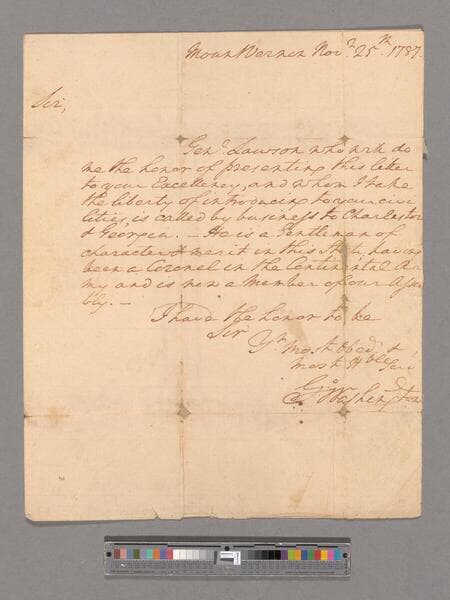 Mount Vernon Novr 25th 1787.
Sir,
Genl Lawson who will do
me the honor of presenting this letter
to your Excellency, and whom I take
the liberty of introducing to your civi
lities, is called by business to Charleston
& Georgia. — He is a Gentleman of
character & merit in this State, having
been a Colonel in the Continental Ar
my and is now a member of our Assem
bly. —
I have the honor to be
Sir
Yr Most Obedt &
Most Hble Ser
Go Washington